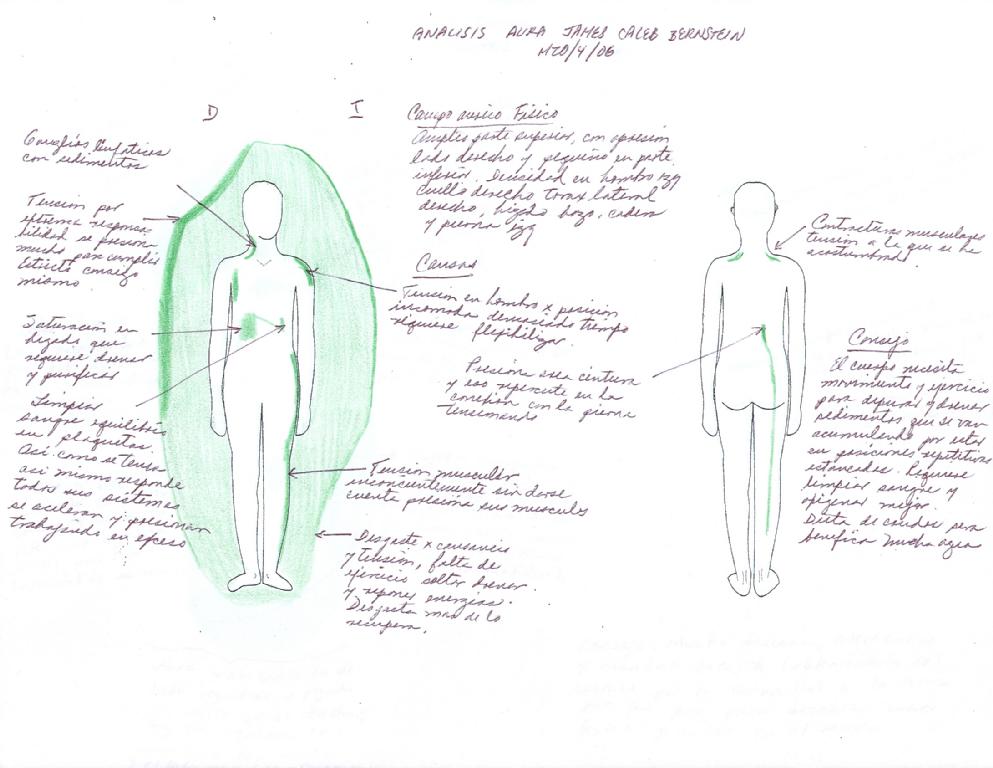 ANALISIS AURA JAMES CALEB BERNSTEIN
MZO/4/06
D
I
Campo aurico Físico
Amplio parte superior, con opresion
lado derecho y pequeño en parte
inferior. Densidad en hombro izq
cuello derecho torax lateral
derecho, higado bazo, cadera
y pierna izq
Ganglios linfaticos
con sedimentos
Tension por
extrema responsa
bilidad se presiona
mucho para cumplir
Estricto consigo
mismo.
Saturación en
higado que
requiere drenar
y purificar
Limpiar
sangre equilibrio
en plaquetas.
Asi como se tensa
asi mismo responde
todos sus sistemas
se aceleran y presionan
trabajando en exceso
Causas
Tension en hombro x posicion
incomoda demasiado tiempo
requiere flexibilizar.
Presión area cintura
y eso repercute en la
conexion con la pierna
tensionando
Tension muscular
inconcientemente sin darse
cuenta presiona sus musculos
Desgaste x cansancio
y tensión, falta de
ejercicio soltar drenar
y reponer energias.
Desgasta mas de lo
recupera.
Contracturas musculares
tension a la que se ha
acostumbrado
Consejo
El cuerpo necesita
movimiento y ejercicio
para depurar y drenar
sedimentos que se van
acumulando por estar
en posiciones repetitivas
estancadas. Requiere
limpiar sangre y
oxigenar mejor.
Dieta de caldos para
beneficia mucha agua